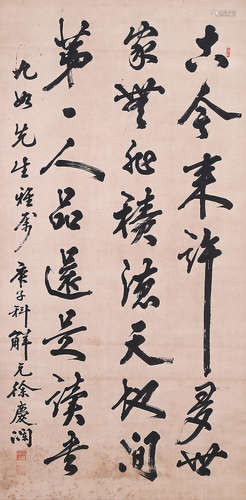 古今来许多世
家無非積德天地间
第一人品還是读书
九如先生雅属
庚子科解元徐慶澜